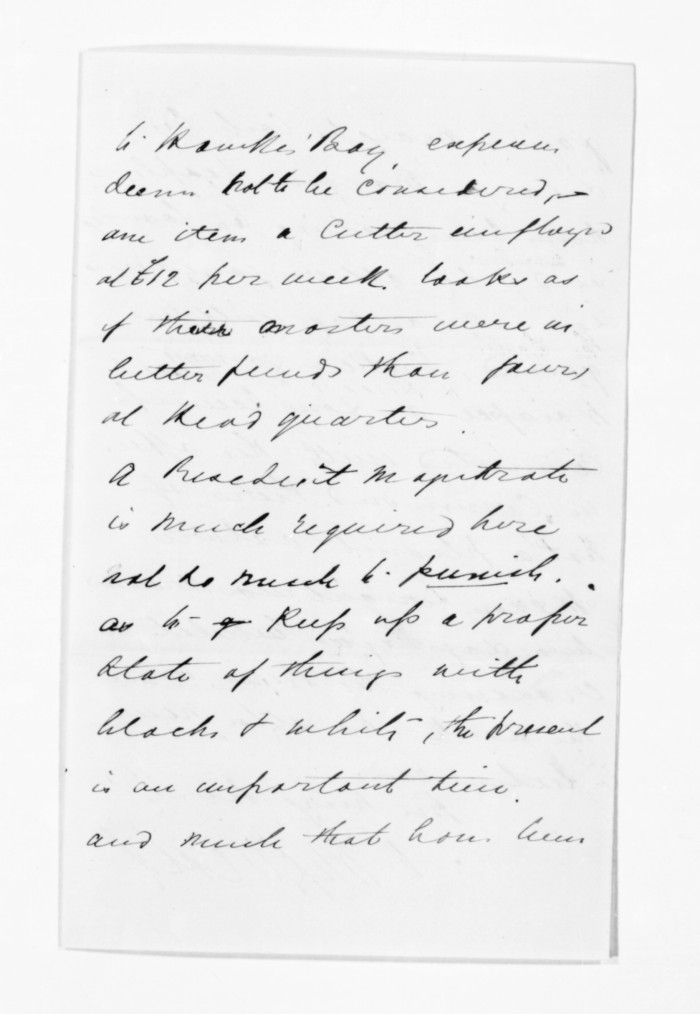 to Hawke's Bay, expense
seems not to be considered,
one item a Cutter employed
at £12 per week. looks as
if their masters were in
better funds than yours
at Head quarters.
A Resedent Magistrate
is much required here
not so much to punish.
as to keep up a proper
state of things with
blacks & whites, the present
is an important time.
and much that has been